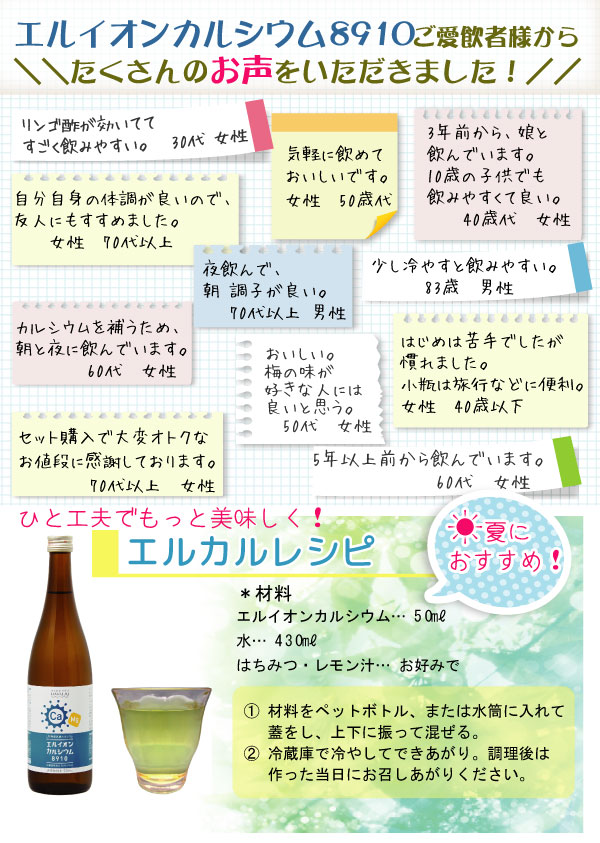 エルイオンカルシウム8910ご愛飲者様から
＼＼たくさんのお声をいただきました！／／
リンゴ酢が効いてて
すごく飲みやすい。 30代 女性
気軽に飲めて
おいしいです。
女性 50歳代
3年前から、娘と
飲んでいます。
10歳の子供でも
飲みやすくて良い。
40歳代 女性
自分自身の体調が良いので、
友人にもすすめました。
女性 70代以上
夜飲んで、
朝 調子が良い。
70代以上 男性
少し冷やすと飲みやすい。
83歳 男性
カルシウムを補うため、
朝と夜に飲んでいます。
60代 女性
おいしい。
梅の味が
好きな人には
良いと思う。
50代 女性
はじめは苦手でしたが
慣れました。
小瓶は旅行などに便利。
女性 40歳以下
セット購入で大変オトクな
お値段に感謝しております。
70代以上 女性
5年以上前から飲んでいます。
60代 女性
ひと工夫でもっと美味しく！
エルカルレシピ
夏に
おすすめ！
＊材料
エルイオンカルシウム… 50㎖
水… 430㎖
はちみつ・レモン汁… お好みで
① 材料をペットボトル、または水筒に入れて
蓋をし、上下に振って混ぜる。
② 冷蔵庫で冷やしてできあがり。調理後は
作った当日にお召しあがりください。
Ca
Mg
エルイオン
カルシウム
8910